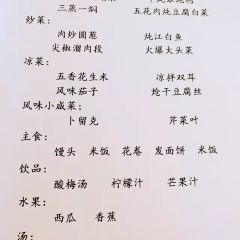 三蒸一焖 五花肉炖豆腐白菜
炒菜：
肉炒圆葱 炖江白鱼
尖椒溜肉段 火爆大头菜
凉菜：
五香花生米 凉拌双耳
风味茄子 炝干豆腐丝
风味小咸菜：
卜留克 芹菜叶
主食：
馒头 米饭 花卷 发面饼 米粥
饮品：
酸梅汤 柠檬汁 芒果汁
水果：
西瓜 香蕉
汤：